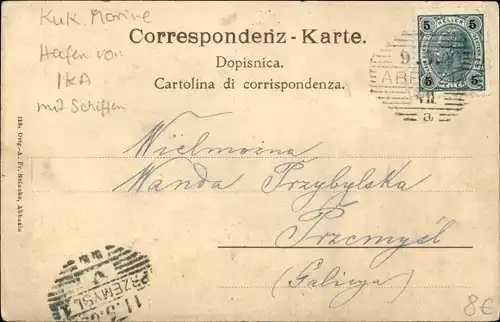 KuK. Marine
Hafen von
IKA
mit Schiffen
Correspondenz - Karte.
Dopisnica.
Cartolina di corrispondenza.
5 HELLER 5
5 HELLER 5
ABB
VII
a
Wielmożna
Wanda Przybylska
Przemyśl
(Galicya)
PRZEMYSL
11.
159. Orig.-A. Fr. Reinecke, Abbazia
8€